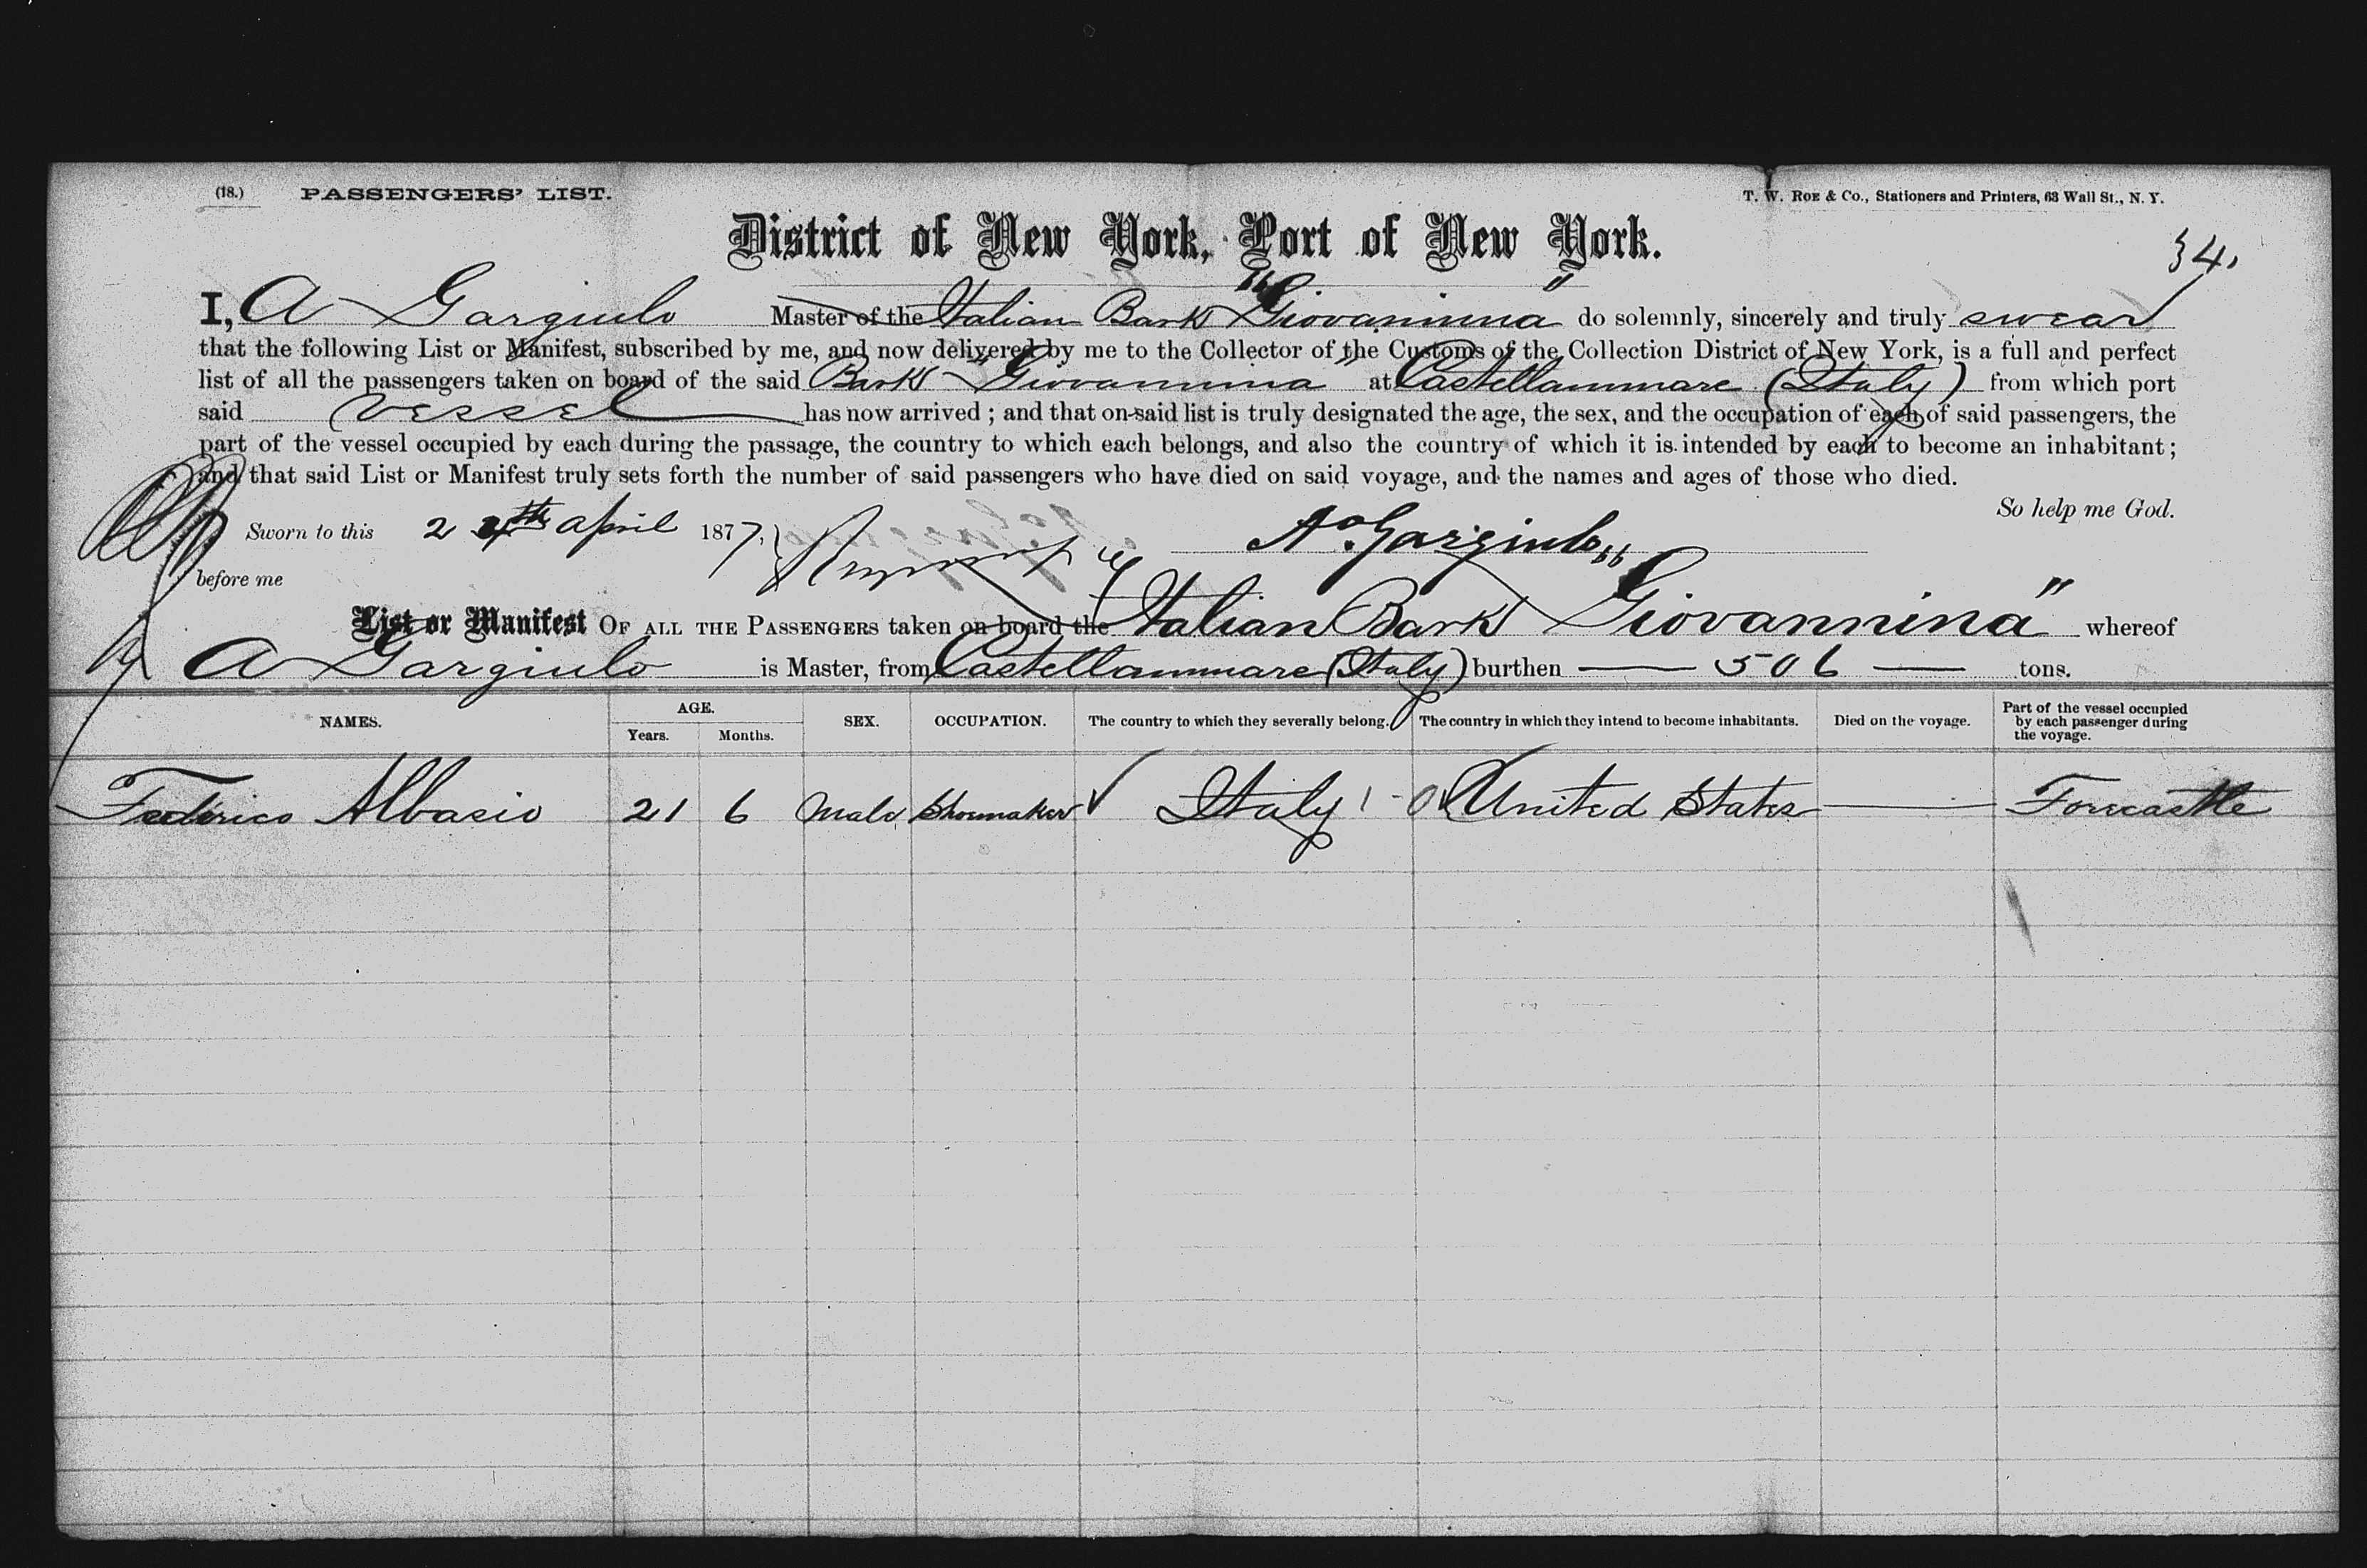 (18.) PASSENGERS' LIST. T. W. ROE & Co., Stationers and Printers, 63 Wall St., N. Y.
District of New York, Port of New York.
34.
I, A Gargiulo Master of the Italian Bark "Giovannina" do solemnly, sincerely and truly swear
that the following List or Manifest, subscribed by me, and now delivered by me to the Collector of the Customs of the Collection District of New York, is a full and perfect
list of all the passengers taken on board of the said Bark "Giovannina" at Castellammare (Italy) from which port
said vessel has now arrived; and that on said list is truly designated the age, the sex, and the occupation of each of said passengers, the
part of the vessel occupied by each during the passage, the country to which each belongs, and also the country of which it is intended by each to become an inhabitant;
and that said List or Manifest truly sets forth the number of said passengers who have died on said voyage, and the names and ages of those who died.
So help me God.
Sworn to this 24th April 1877, Ao. Gargiulo
before me
List or Manifest OF ALL THE PASSENGERS taken on board the Italian Bark "Giovannina" whereof
A Gargiulo is Master, from Castellammare (Italy) burthen 506 tons.
NAMES. AGE. Years. Months. SEX. OCCUPATION. The country to which they severally belong. The country in which they intend to become inhabitants. Died on the voyage. Part of the vessel occupied by each passenger during the voyage.
Federico Albasio 21 6 Male Shoemaker Italy United States Forecastle